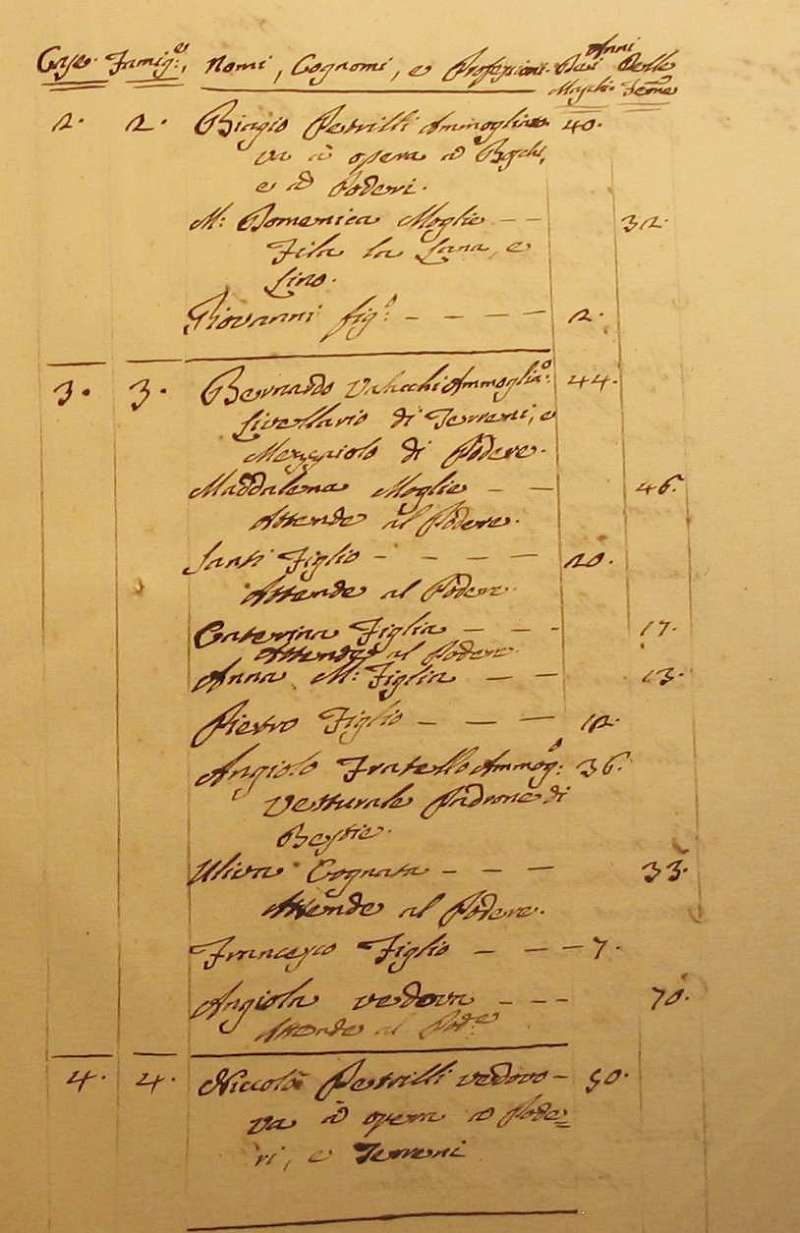 Case. Famig:e, Nomi, Cognomi, e Professioni. Anni Dei Maschi. Delle Femine
2. 2. Biagio Petrilli Ammogliato 40.
va à opera à Boschi,
e à Poderi.
M: Domenica Moglie - - 32.
Fila la Lana, e
Lino.
Giovanni fig:o - - - - 2.
3. 3. Bernardo Ammoglia:o 44.
Livellario di Terreni, e
Mezzaiolo di Podere.
Maddalena Moglie - - 46.
Attende al Podere.
Santi Figlio - - - - 20.
Attende al Podere.
Caterina Figlia - - - 17.
Attende al Podere.
Anna M: Figlia - - 13.
Pietro Figlio - - - 12.
Angiolo Fratello Ammog:o 36.
Vetturale Padrone di
Bestie.
Uliva Cognata - - - 33.
Attende al Podere.
Francesco Figlio - - - 7.
Angiola vedova - - - 70.
Attende al Pod:e
4. 4. Niccolò Petrilli vedovo - 50.
va à opera à Pode=
ri, e Terreni